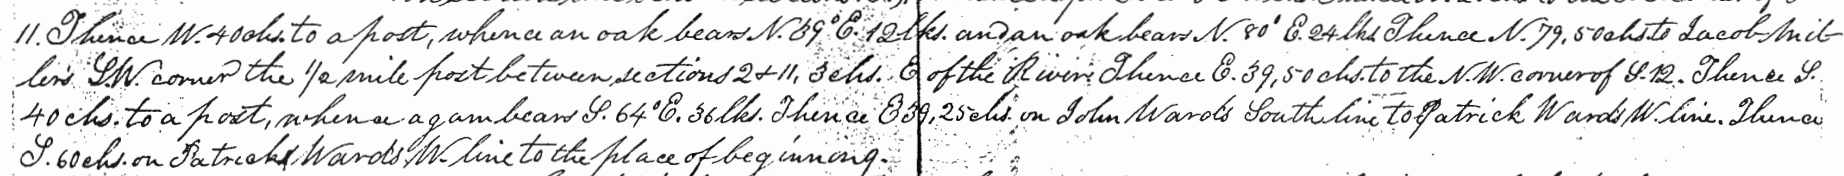 11. Thence W. 40 chs. to a post, whence an oak bears N. 39° E. 12 lks. and an oak bears N. 80° E. 24 lks Thence N. 79,50 chs to Jacob Mil-
lers S.W. corner the 1/2 mile post between sections 2 & 11, 3 chs. E. of the River Thence E. 39,50 chs. to the N.W. corner of S. 12. Thence S.
40 chs. to a post, whence a gum bears S. 64° E. 36 lks. Thence E 39,25 chs. on John Wards South line to Patrick Wards W. line. Thence
S. 60 chs. on Patricks Wards W. line to the place of beginnong.